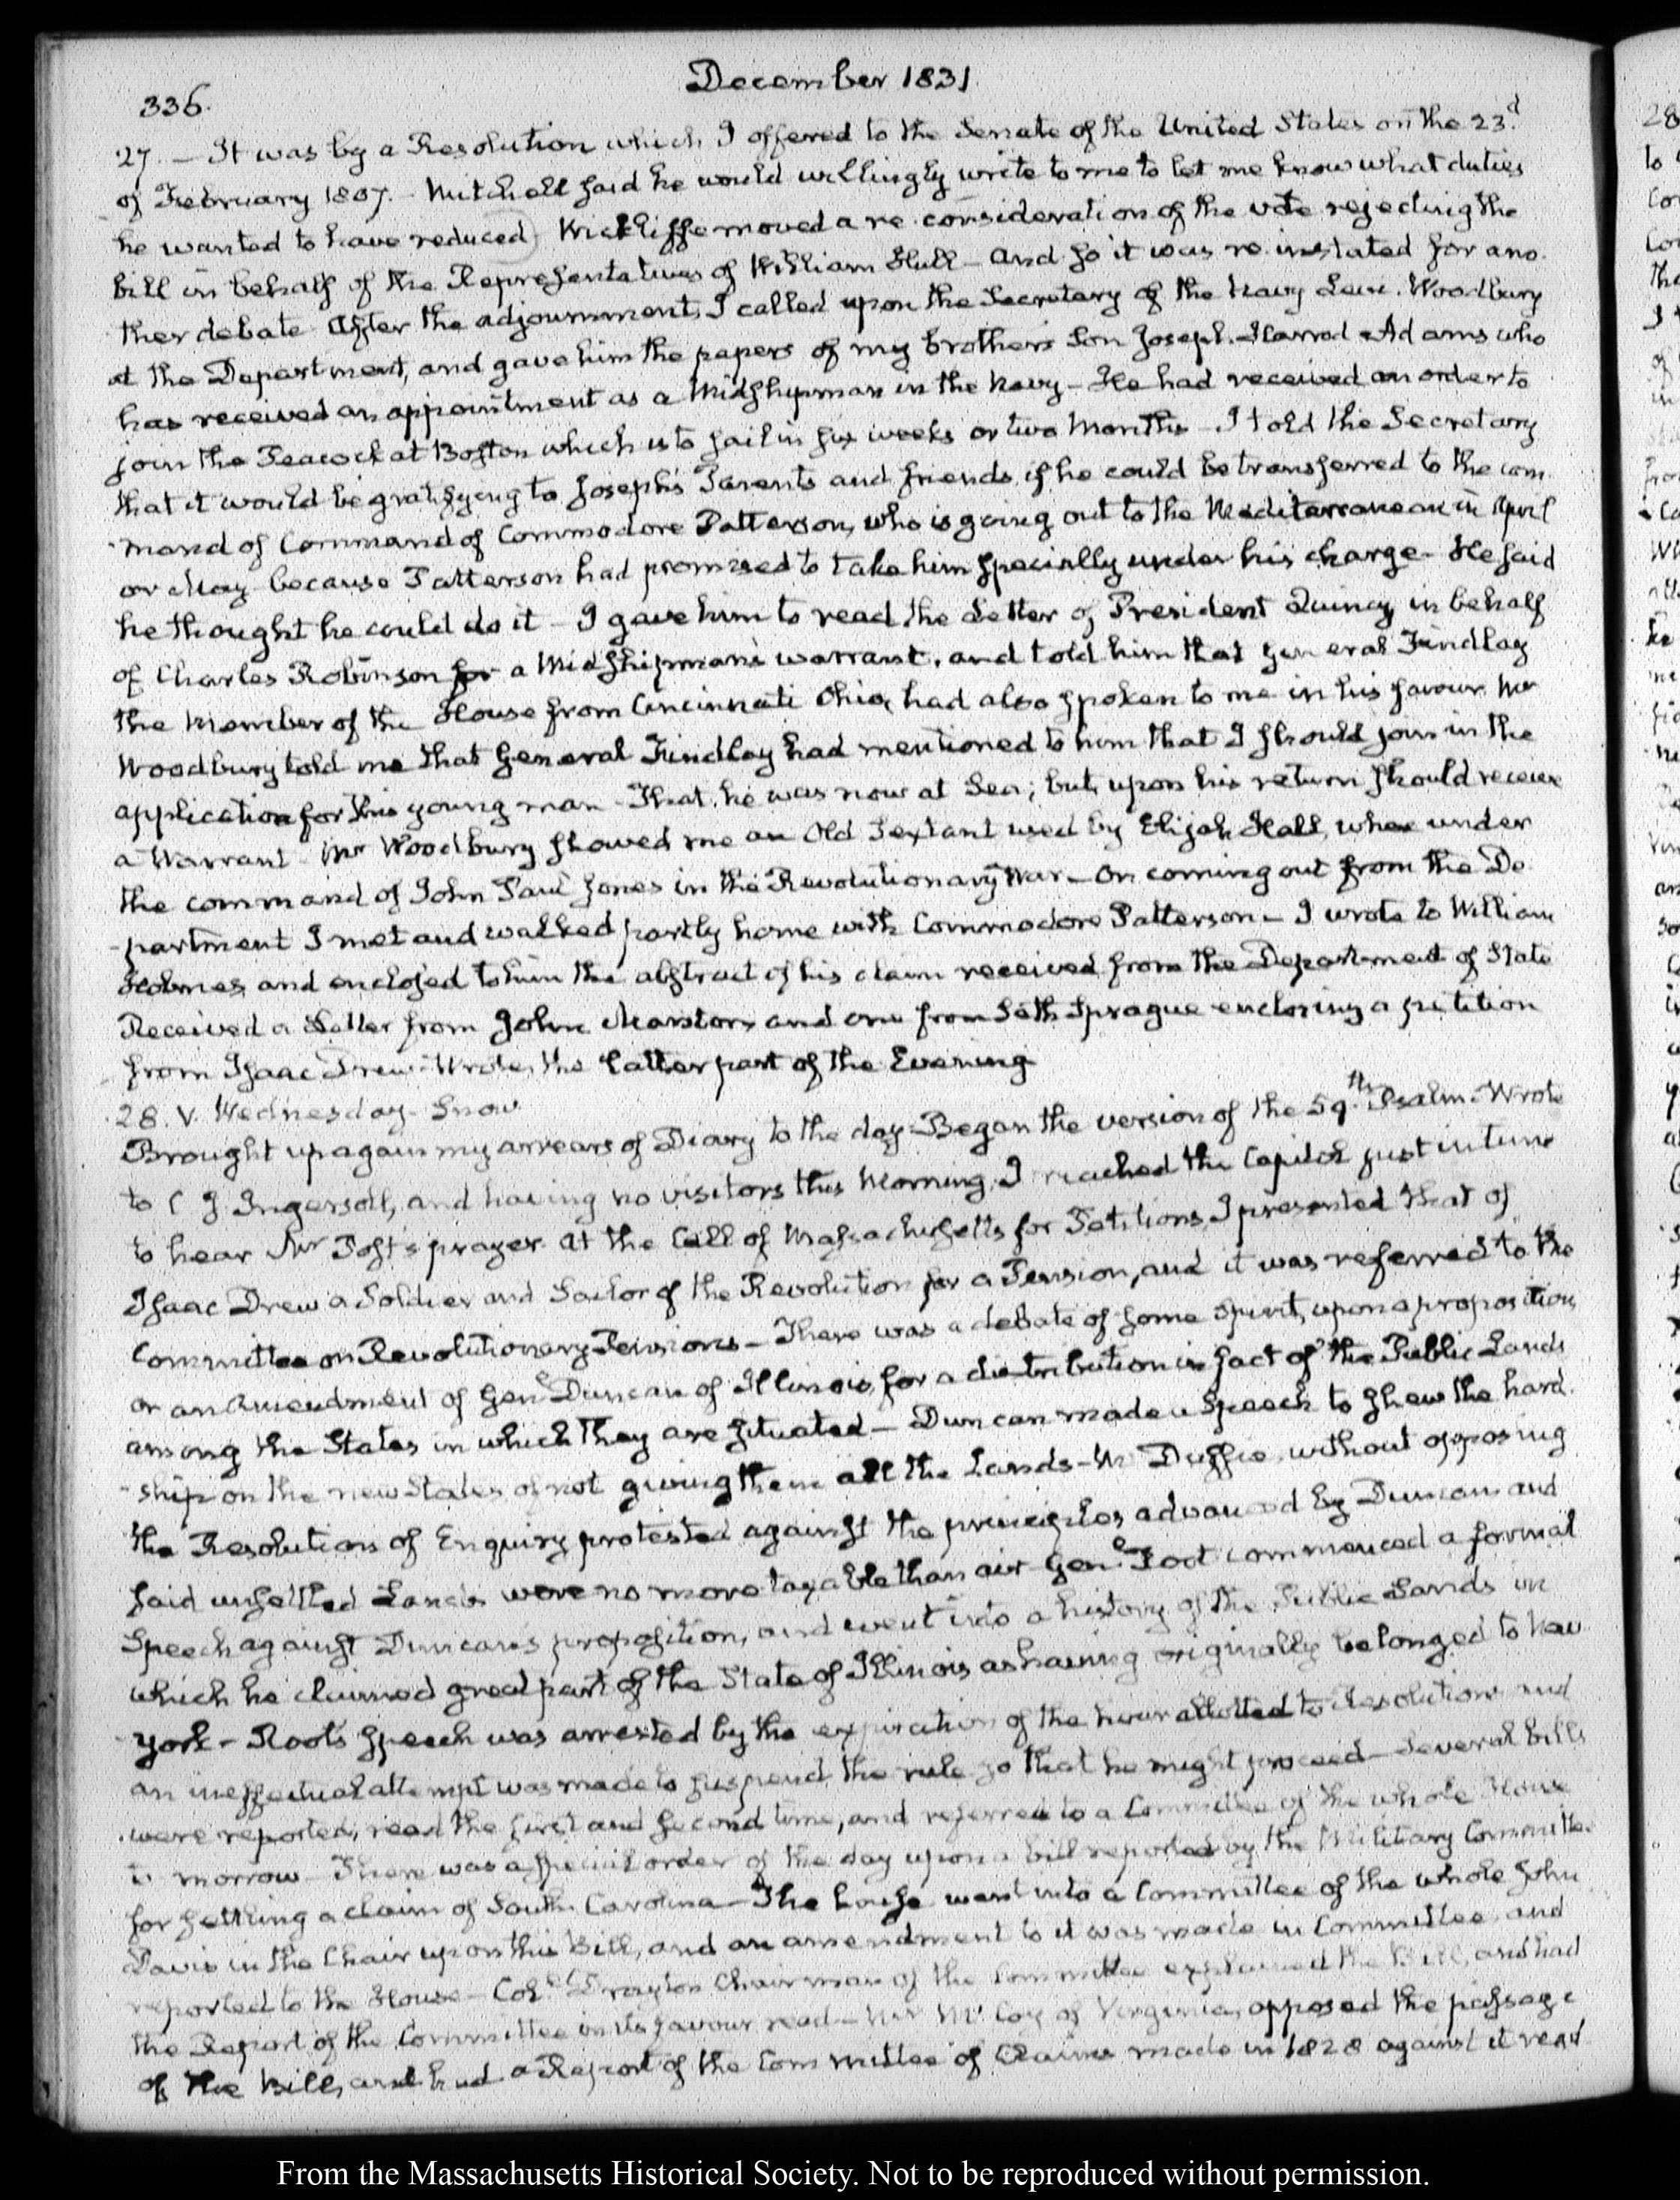 December 1831
336.
27. — It was by a Resolution which I offered to the Senate of the United States on the 23.d
of February 1807. — Mitchell said he would willingly write to me to let me know what duties
he wanted to have reduced) Wickliffe moved a re-consideration of the vote rejecting the
bill in behalf of the Representatives of William Hull — and so it was re-instated for ano-
ther debate. After the adjournment, I called upon the Secretary of the Navy Levi Woodbury
at the Department, and gave him the papers of my brother's Son Joseph Harrod Adams who
has received an appointment as a Midshipman in the Navy — He had received an order to
join the Peacock at Boston which is to sail in six weeks or two Months — I told the Secretary
that it would be gratifying to Joseph's Parents and friends, if he could be transferred to the com-
mand of Command of Commodore Patterson, who is going out to the Mediterranean in April
or May because Patterson had promised to take him specially under his charge — He said
he thought he could do it — I gave him to read the Letter of President Quincy in behalf
of Charles Robinson for a Midshipman's warrant, and told him that General Findlay
the Member of the House from Cincinnati Ohio, had also spoken to me in his favour. Mr
Woodbury told me that General Findlay had mentioned to him that I should join in the
application for this young man — That he was now at Sea; but upon his return should receive
a Warrant — Mr Woodbury showed me an Old Sextant used by Elijah Hall, when under
the command of John Paul Jones in the Revolutionary War — On coming out from the De-
partment I met and walked partly home with Commodore Patterson — I wrote to William
Holmes and enclosed to him the abstract of his claim received from the Department of State
Received a Letter from John Marston, and one from Seth Sprague enclosing a petition
from Isaac Drew — Wrote, the latter part of the Evening
28. V. Wednesday. Snow.
Brought up again my arrears of Diary to the day — Began the version of the 59.th Psalm. Wrote
to C J Ingersoll, and having no visitors this Morning, I reached the Capitol just in time
to hear Mr Post's prayer. At the Call of Massachusetts for Petitions, I presented that of
Isaac Drew a Soldier and Sailor of the Revolution for a Pension, and it was referred to the
Committee on Revolutionary Pensions — There was a debate of some Spirit, upon a proposition
or an Amendment of Genl Duncan of Illinois, for a distribution in fact of the Public Lands
among the States in which they are situated — Duncan made a Speech to shew the hard-
ship on the new States of not giving them all the Lands — Mc Duffie, without opposing
the Resolution of Enquiry protested against the principles advanced by Duncan and
said unsettled Lands were no more taxable than air — Genl Root commenced a formal
Speech against Duncan's proposition, and went into a history of the Public Lands in
which he claimed great part of the State of Illinois as having originally belonged to New-
York — Root's speech was arrested by the expiration of the hour allotted to Resolutions and
an ineffectual attempt was made to suspend the rule so that he might proceed — Several bills
were reported, read the first and second time, and referred to a Committee of the whole House
to morrow — There was a special order of the day upon a bill reported by the Military Committee
for settling a claim of South Carolina — The house went into a Committee of the whole John
Davis in the Chair upon this Bill, and an amendment to it was made in Committee, and
reported to the House — Coll Drayton Chairman of the Committee explained the Bill, and had
the Report of the Committee in its favour read — Mr Mc Coy of Virginia, opposed the passage
of the Bill, and had a Report of the Committee of Claims made in 1828 against it read
From the Massachusetts Historical Society. Not to be reproduced without permission.